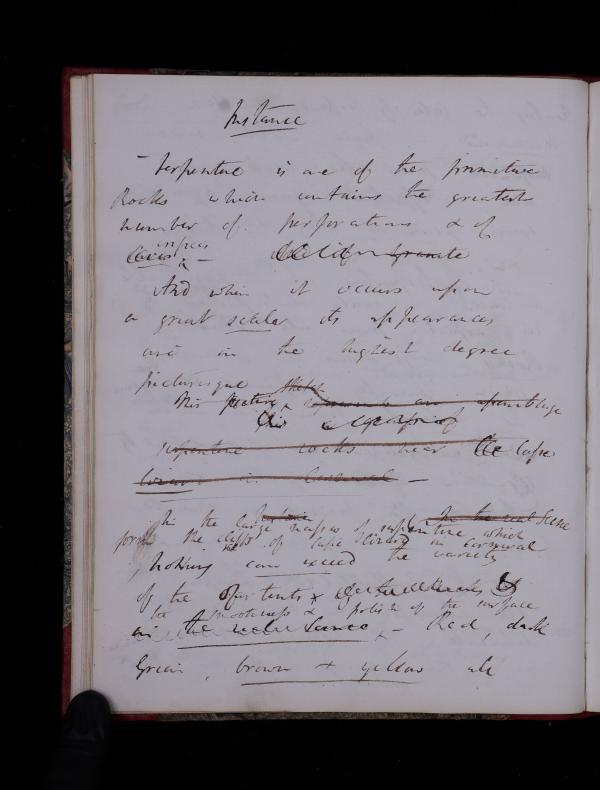 Instance
- Serpentine is one of the primitive
Rocks which contains the greatest
number of perforations & of
Caves -
And when it occurs upon
a great scale its appearances
are in the highest degree
picturesque
This picture sketch represents an assemblage
this
serpentine rocks near the Cape
Lizard in Cornwall -
In the real Scene
In the large masses of serpentine which
form the cliffs of Cape Lizard in Cornwall
nothing can exceed the variety
of the tints &
the smoothness & polish of the surface
in the real Scene - Red, dark
Green, brown & yellow all